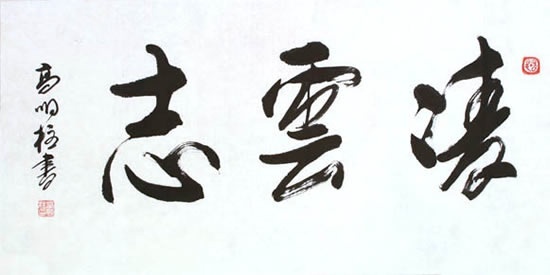 凌雲志
高明柱書